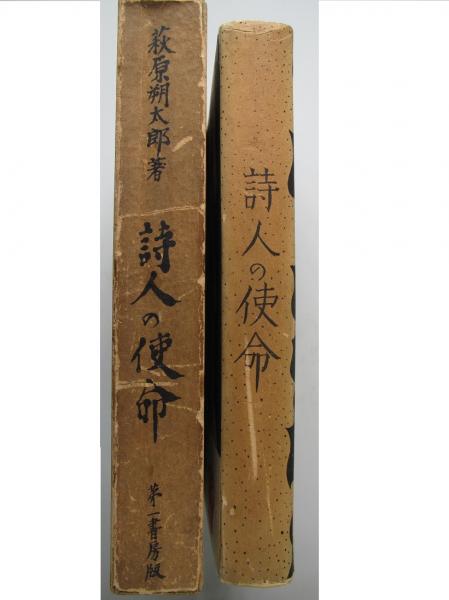 萩原朔太郎著
詩人の使命
第一書房版
詩人の使命